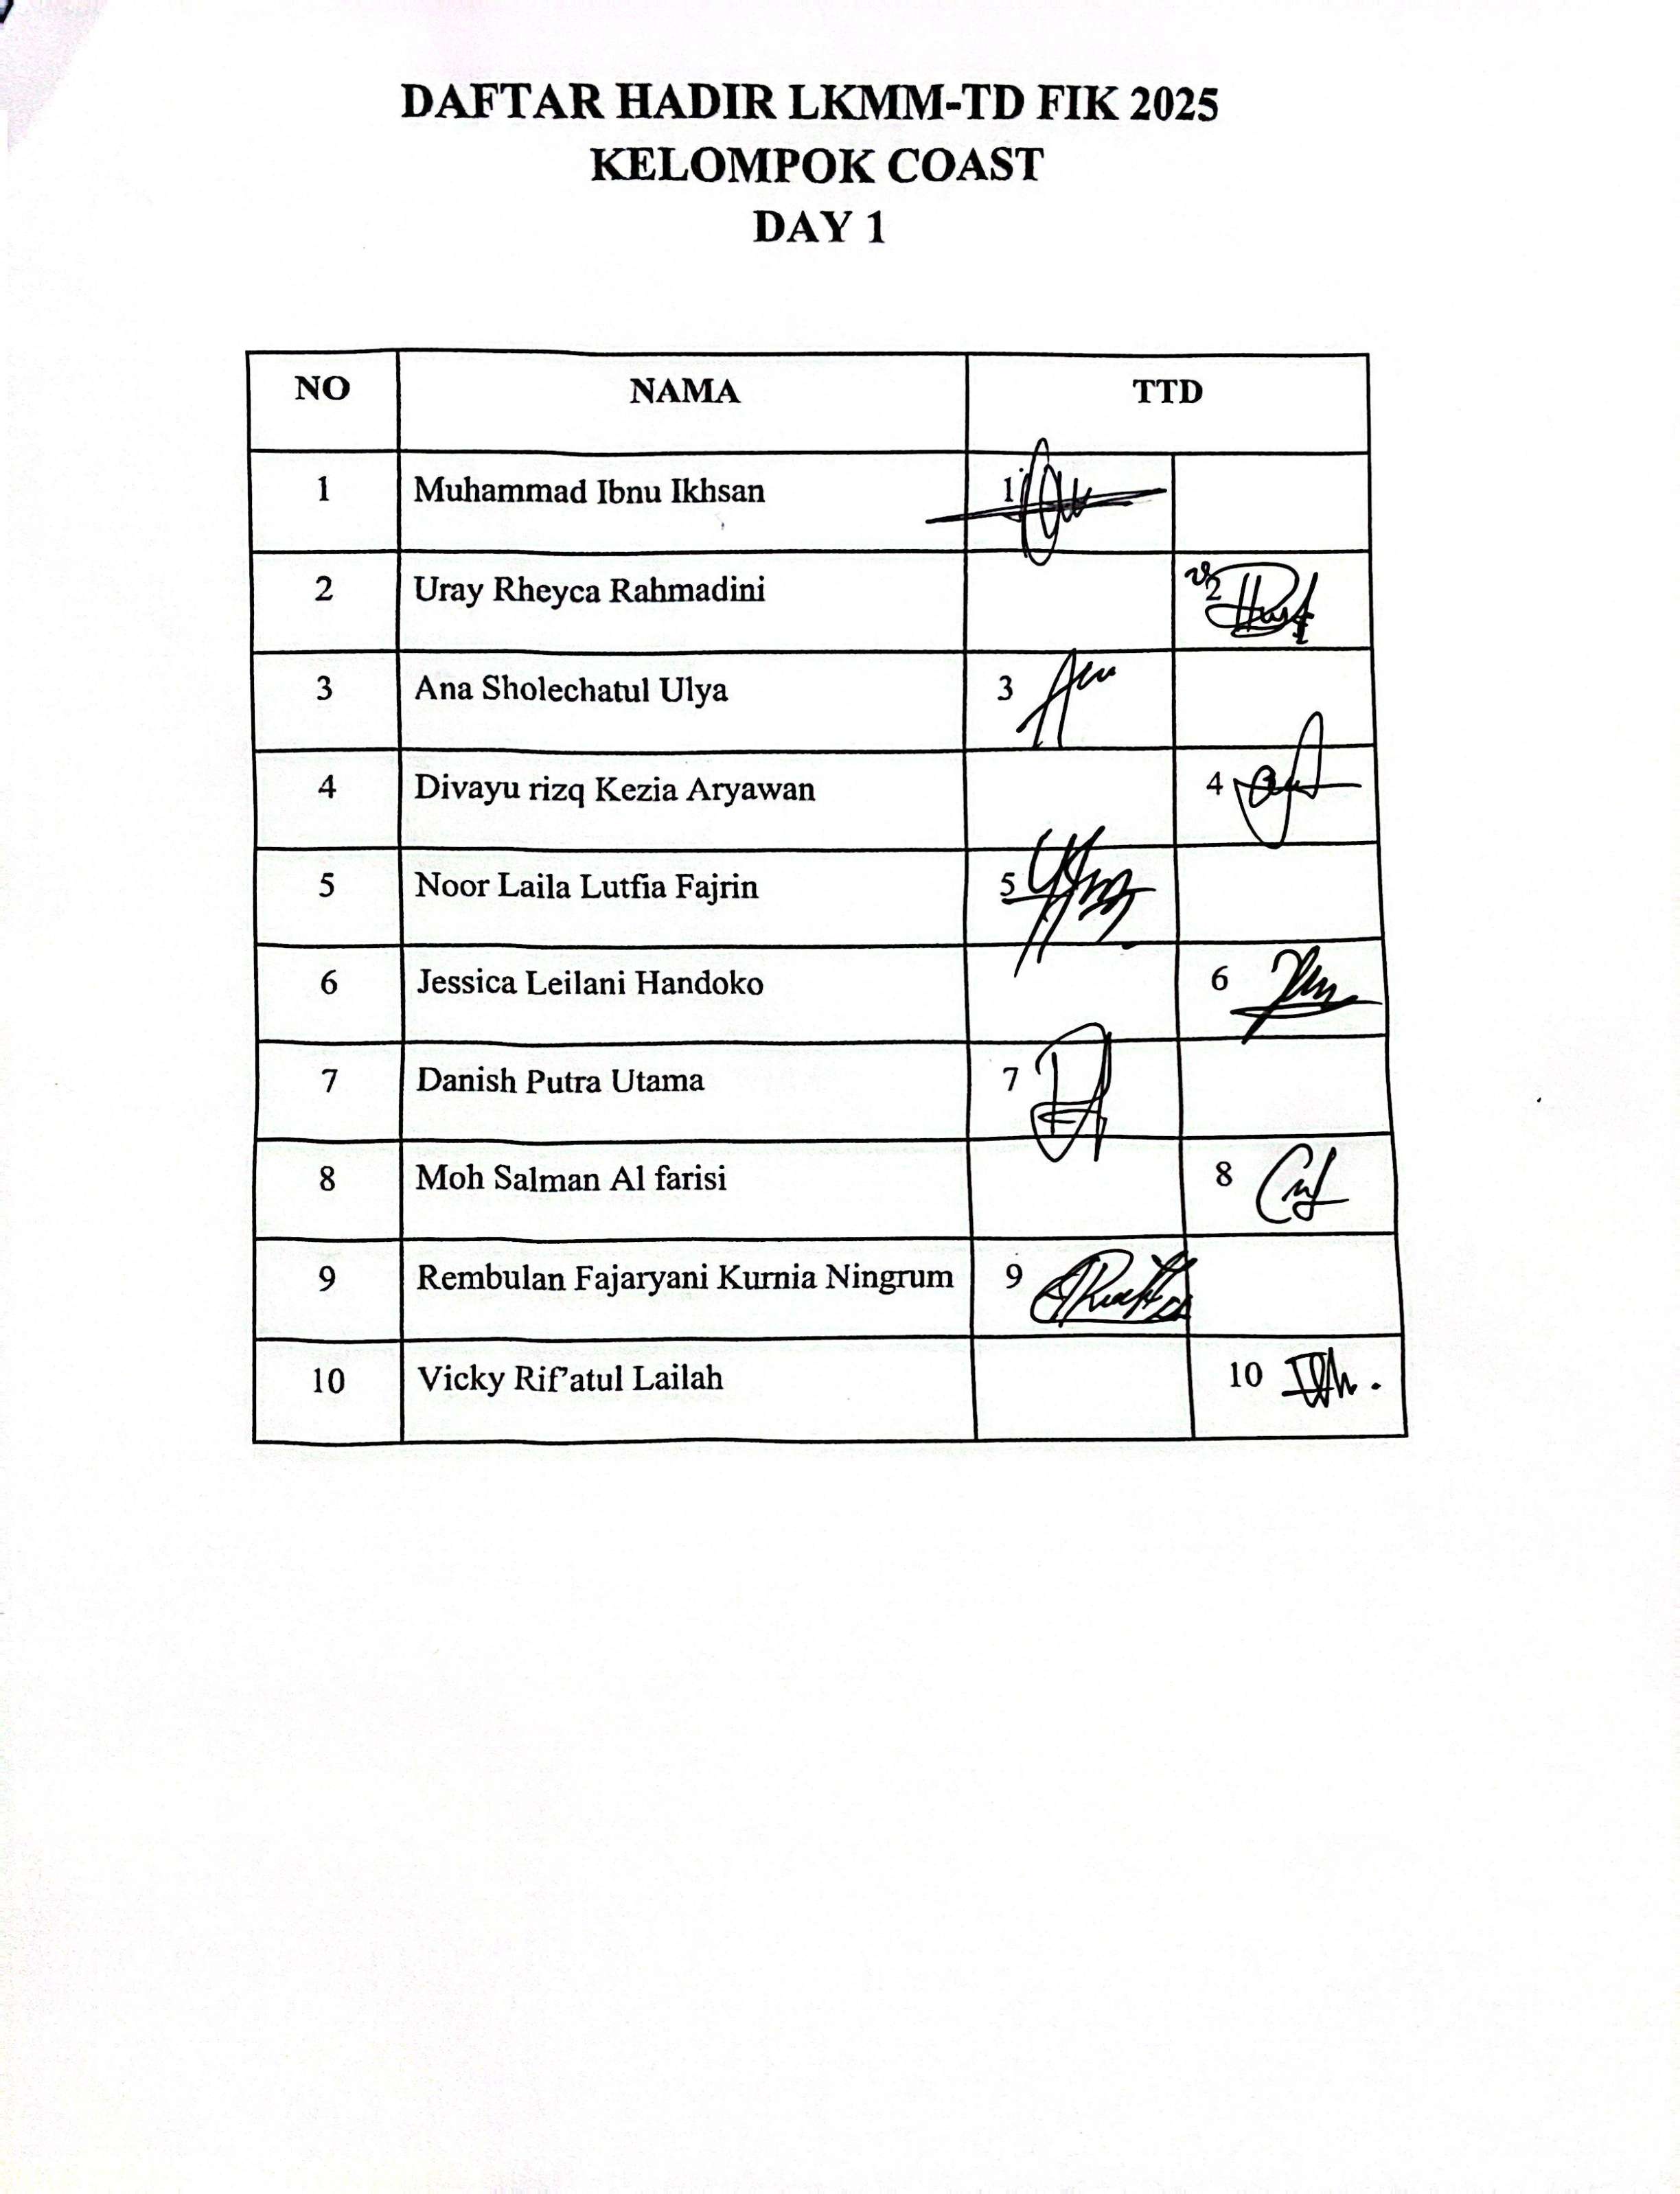 DAFTAR HADIR LKMM-TD FIK 2025
KELOMPOK COAST
DAY 1
NO NAMA TTD
1 Muhammad Ibnu Ikhsan 1
2 Uray Rheyca Rahmadini 2
3 Ana Sholechatul Ulya 3
4 Divayu rizq Kezia Aryawan 4
5 Noor Laila Lutfia Fajrin 5
6 Jessica Leilani Handoko 6
7 Danish Putra Utama 7
8 Moh Salman Al farisi 8
9 Rembulan Fajaryani Kurnia Ningrum 9
10 Vicky Rif’atul Lailah 10